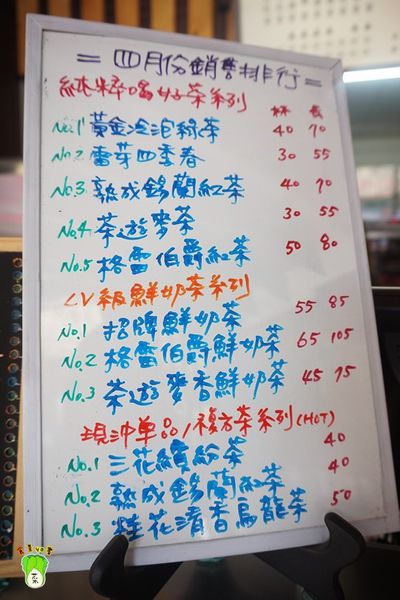 = 四月份銷售排行 =
純粹喝好茶系列 杯 瓶
No.1 黃金冷泡綠茶 40 70
No.2 雪芽四季春 30 55
No.3 熟成錫蘭紅茶 40 70
No.4 茶遊麥茶 30 55
No.5 格雷伯爵紅茶 50 80
LV級鮮奶茶系列
No.1 招牌鮮奶茶 55 85
No.2 格雷伯爵鮮奶茶 65 105
No.3 茶遊麥香鮮奶茶 45 75
現沖單品/複方茶系列(HOT)
No.1 三花繽紛茶 40
No.2 熟成錫蘭紅茶 40
No.3 桂花清香烏龍茶 50